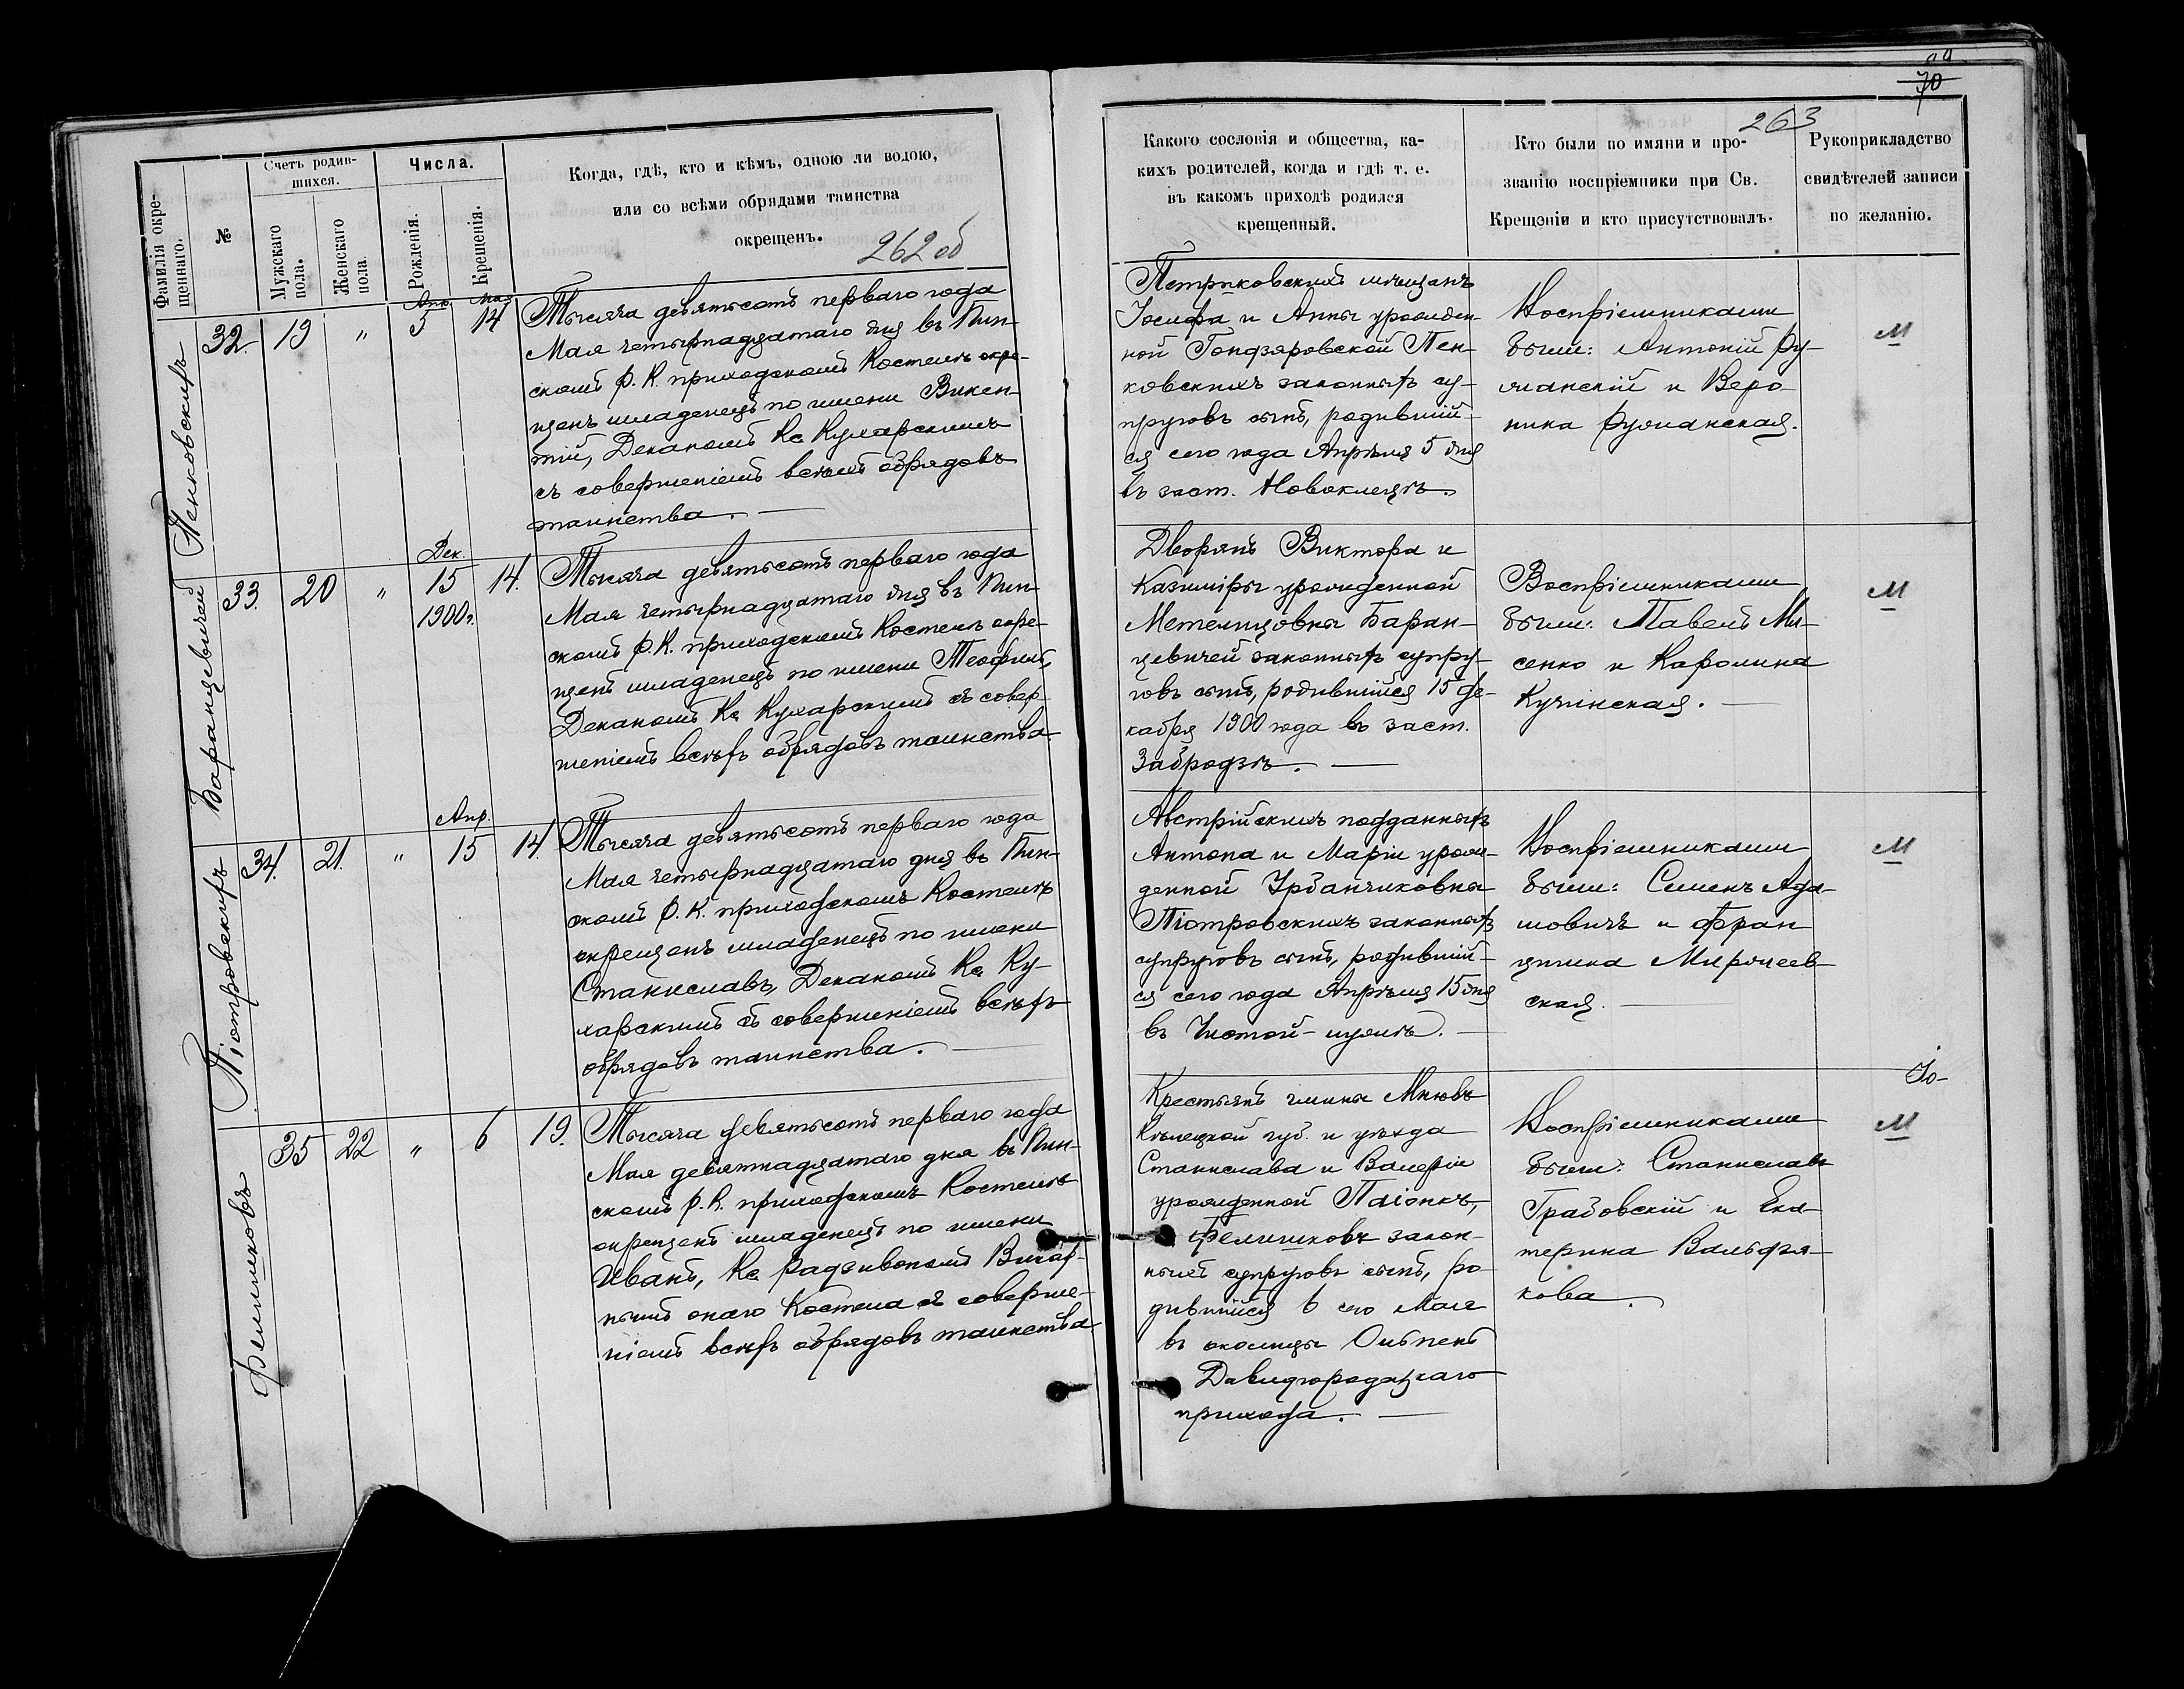 Фамилія окре-
щеннаго.
№
Счетъ родив-
шихся.
Мужскаго
пола.
Женскаго
пола.
Числа.
Рожденія.
Крещенія.
Когда, гдѣ, кто и кѣмъ, одною ли водою,
или со всѣми обрядами таинства
окрещенъ.
262 об
Пенковскихъ
32.
19
"
Апр.
5
Мая
14
Тысяча девятьсотъ перваго года
Мая четырнадцатаго дня въ Пин-
скомъ Р. К. приходскомъ Костелѣ окре-
щенъ младенецъ по имени Викен-
тій, Деканомъ Кс Кухарскимъ
съ совершеніемъ всѣхъ обрядовъ
таинства.
Баранцевичей
33.
20
"
Дек.
15
1900 г.
14.
Тысяча девятьсотъ перваго года
Мая четырнадцатаго дня въ Пин-
скомъ Р. К. приходскомъ Костелѣ окре-
щенъ младенецъ по имени Теофилъ,
Деканомъ Кс Кухарскимъ съ совер-
шеніемъ всѣхъ обрядовъ таинства
Піотровскихъ
34.
21.
"
Апр.
15
14.
Тысяча девятьсотъ перваго года
Мая четырнадцатаго дня въ Пин-
скомъ Р. К. приходскомъ Костелѣ
окрещенъ младенецъ по имени
Станиславъ, Деканомъ Кс Ку-
харскимъ съ совершеніемъ всѣхъ
обрядовъ таинства.
Фелишковъ
35
22
"
6
19.
Тысяча девятьсотъ перваго года
Мая девятнадцатаго дня въ Пин-
скомъ Р. К. приходскомъ Костелѣ
окрещенъ младенецъ по имени
Иванъ, Кс Радзивономъ Викар-
нымъ онаго Костела съ соверше-
ніемъ всѣхъ обрядовъ таинства
70
263
Какого сословія и общества, ка-
кихъ родителей, когда и гдѣ т. е.
въ какомъ приходѣ родился
крещенный.
Кто были по имяни и про-
званію воспріемники при Св.
Крещеніи и кто присутствовалъ.
Рукоприкладство
свидѣтелей записи
по желанію.
Петриковскихъ мѣщанъ
Іосифа и Анны урожден-
ной Гонзяровской Пен-
ковскихъ законныхъ су-
пруговъ сынъ, родившій-
ся сего года Апрѣля 5 дня
въ заст. Новоклецкѣ.
Воспріемниками
были: Антоній Ру-
манскій и Веро
ника Руманская.
М
Дворянъ Виктора и
Казиміры урожденной
Метелицовны Баран-
цевичей законныхъ супру-
говъ сынъ, родившійся 15 Де-
кабря 1900 года въ заст.
Забродзѣ.
Воспріемниками
были: Павелъ Ми-
сенко и Каролина
Кучинская.
М
Австрійскихъ подданныхъ
Антона и Маріи урож-
денной Урбанчиковны
Піотровскихъ законныхъ
супруговъ сынъ, родившій-
ся сего года Апрѣля 15 дня
въ Чистой-лужѣ.
Воспріемниками
были: Семенъ Ада-
мовичъ и Фран
цишка Мирочев-
ская.
М
Крестьянъ гмины Мнювъ
Кѣлецкой губ. и уѣзда
Станислава и Валеріи
урожденной Паіонкъ,
Фелишковъ закон-
ныхъ супруговъ сынъ, ро
дившійся 6 сего Мая
въ околицы
Давидгородецкаго
прихода.
Воспріемниками
были: Станиславъ
Грабовскій и Ека-
терина Вальфря-
кова.
Ю-
М